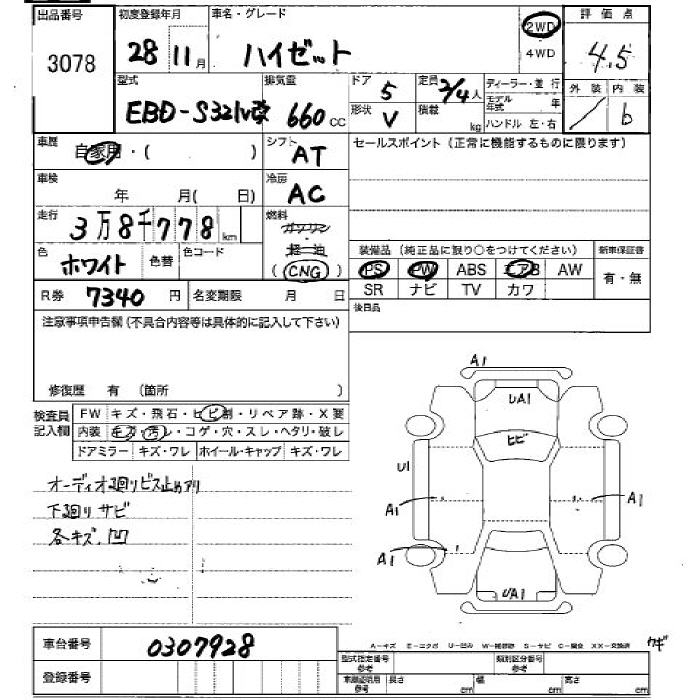 出品番号 初度登録年月 車名・グレード 2WD 評価点
3078 28 11月 ハイゼット 4WD 4.5
型式 排気量 ドア 5 定員 2/4人 ディーラー・並行 外装 内装
EBD-S321V改 660cc 形状 V 積載 kg モデル年式 年 b
ハンドル 左・右
車歴 自家用・( ) シフト AT セールスポイント(正常に機能するものに限ります)
車検 年 月( 日) 冷房 AC
走行 3万8千778km 燃料 ガソリン
軽油
色 ホワイト 色替 色コード (CNG) 装備品(純正品に限り○をつけてください) 新車保証書
PS PW ABS エアB AW 有・無
R券 7340円 名変期限 月 日 SR ナビ TV カワ
注意事項申告欄(不具合内容等は具体的に記入して下さい) 後日品
修復歴 有 (箇所 )
検査員 FW キズ・飛石・ヒビ割・リペア跡・X要
記入欄 内装 キズ・汚レ・コゲ・穴・スレ・ヘタリ・破レ
ドアミラー キズ・ワレ ホイール・キャップ キズ・ワレ
A1
UA1
ヒビ
U1
A1 A1
A1
UA1
オーディオ廻りビス止めアリ
下廻りサビ
各キズ.凹
車台番号 0307928
A-キズ E-エクボ U-凹み W-補修跡 S-サビ C-腐食 XX-交換済
登録番号 型式指定番号 参考 類別区分番号 参考
車庫証明用 参考 長さ cm 幅 cm 高さ cm